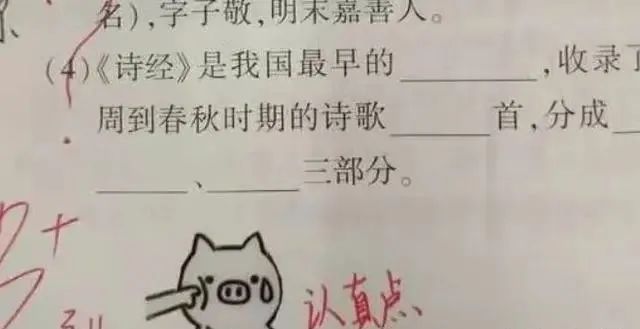 名),字子敬,明末嘉善人。
(4)《诗经》是我国最早的________,收录了
周到春秋时期的诗歌______首,分成__
______、______三部分。
认真点